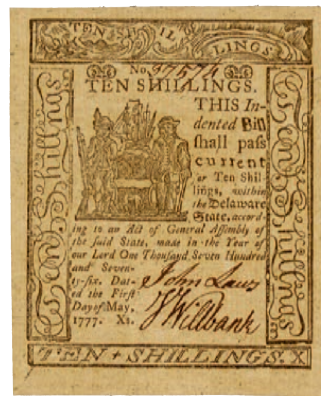 TEN SHILLINGS.
No. 37574
TEN SHILLINGS.
THIS In-
dented Bill
shall pass
current
for Ten Shil-
lings, within
the Delaware
State, accord-
ing to an Act of General Assembly of
the said State, made in the Year of
our Lord One Thousand Seven Hundred
and Seven-
ty-six. Dat-
ed the First
Day of May,
1777. Xs.
John Laws
J Willbank
Ten Shillings
Ten Shillings
TEN + SHILLINGS. X